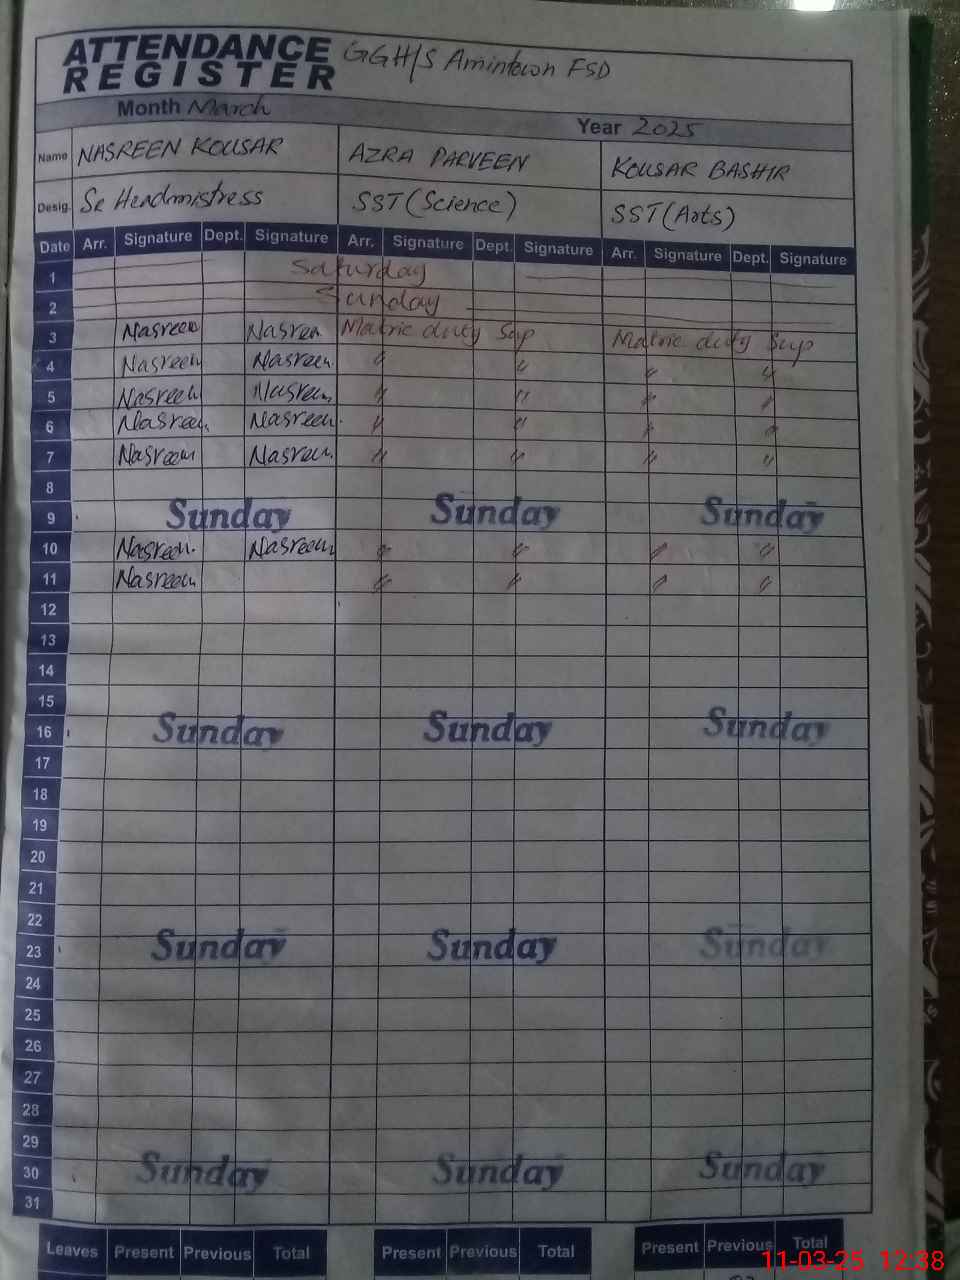 ATTENDANCE REGISTER GGH/S Amintown FSD
Month March Year 2025
Name NASREEN KOUSAR AZRA PARVEEN KOUSAR BASHIR
Desig. Sr Headmistress SST (Science) SST (Arts)
Date Arr. Signature Dept. Signature Arr. Signature Dept. Signature Arr. Signature Dept. Signature
1 Saturday
2 Sunday
3 Nasreen Nasreen Matric duty Sup Matric duty Sup
4 Nasreen Nasreen. " " " "
5 Nasreen Nasreen " " " "
6 Nasreen Nasreen. " " " "
7 Nasreen Nasreen. " " " "
8
9 Sunday Sunday Sunday
10 Nasreen. Nasreen " " " "
11 Nasreen " " " "
12
13
14
15
16 Sunday Sunday Sunday
17
18
19
20
21
22
23 Sunday Sunday Sunday
24
25
26
27
28
29
30 Sunday Sunday Sunday
31
Leaves Present Previous Total Present Previous Total Present Previous Total
11-03-25 12:38